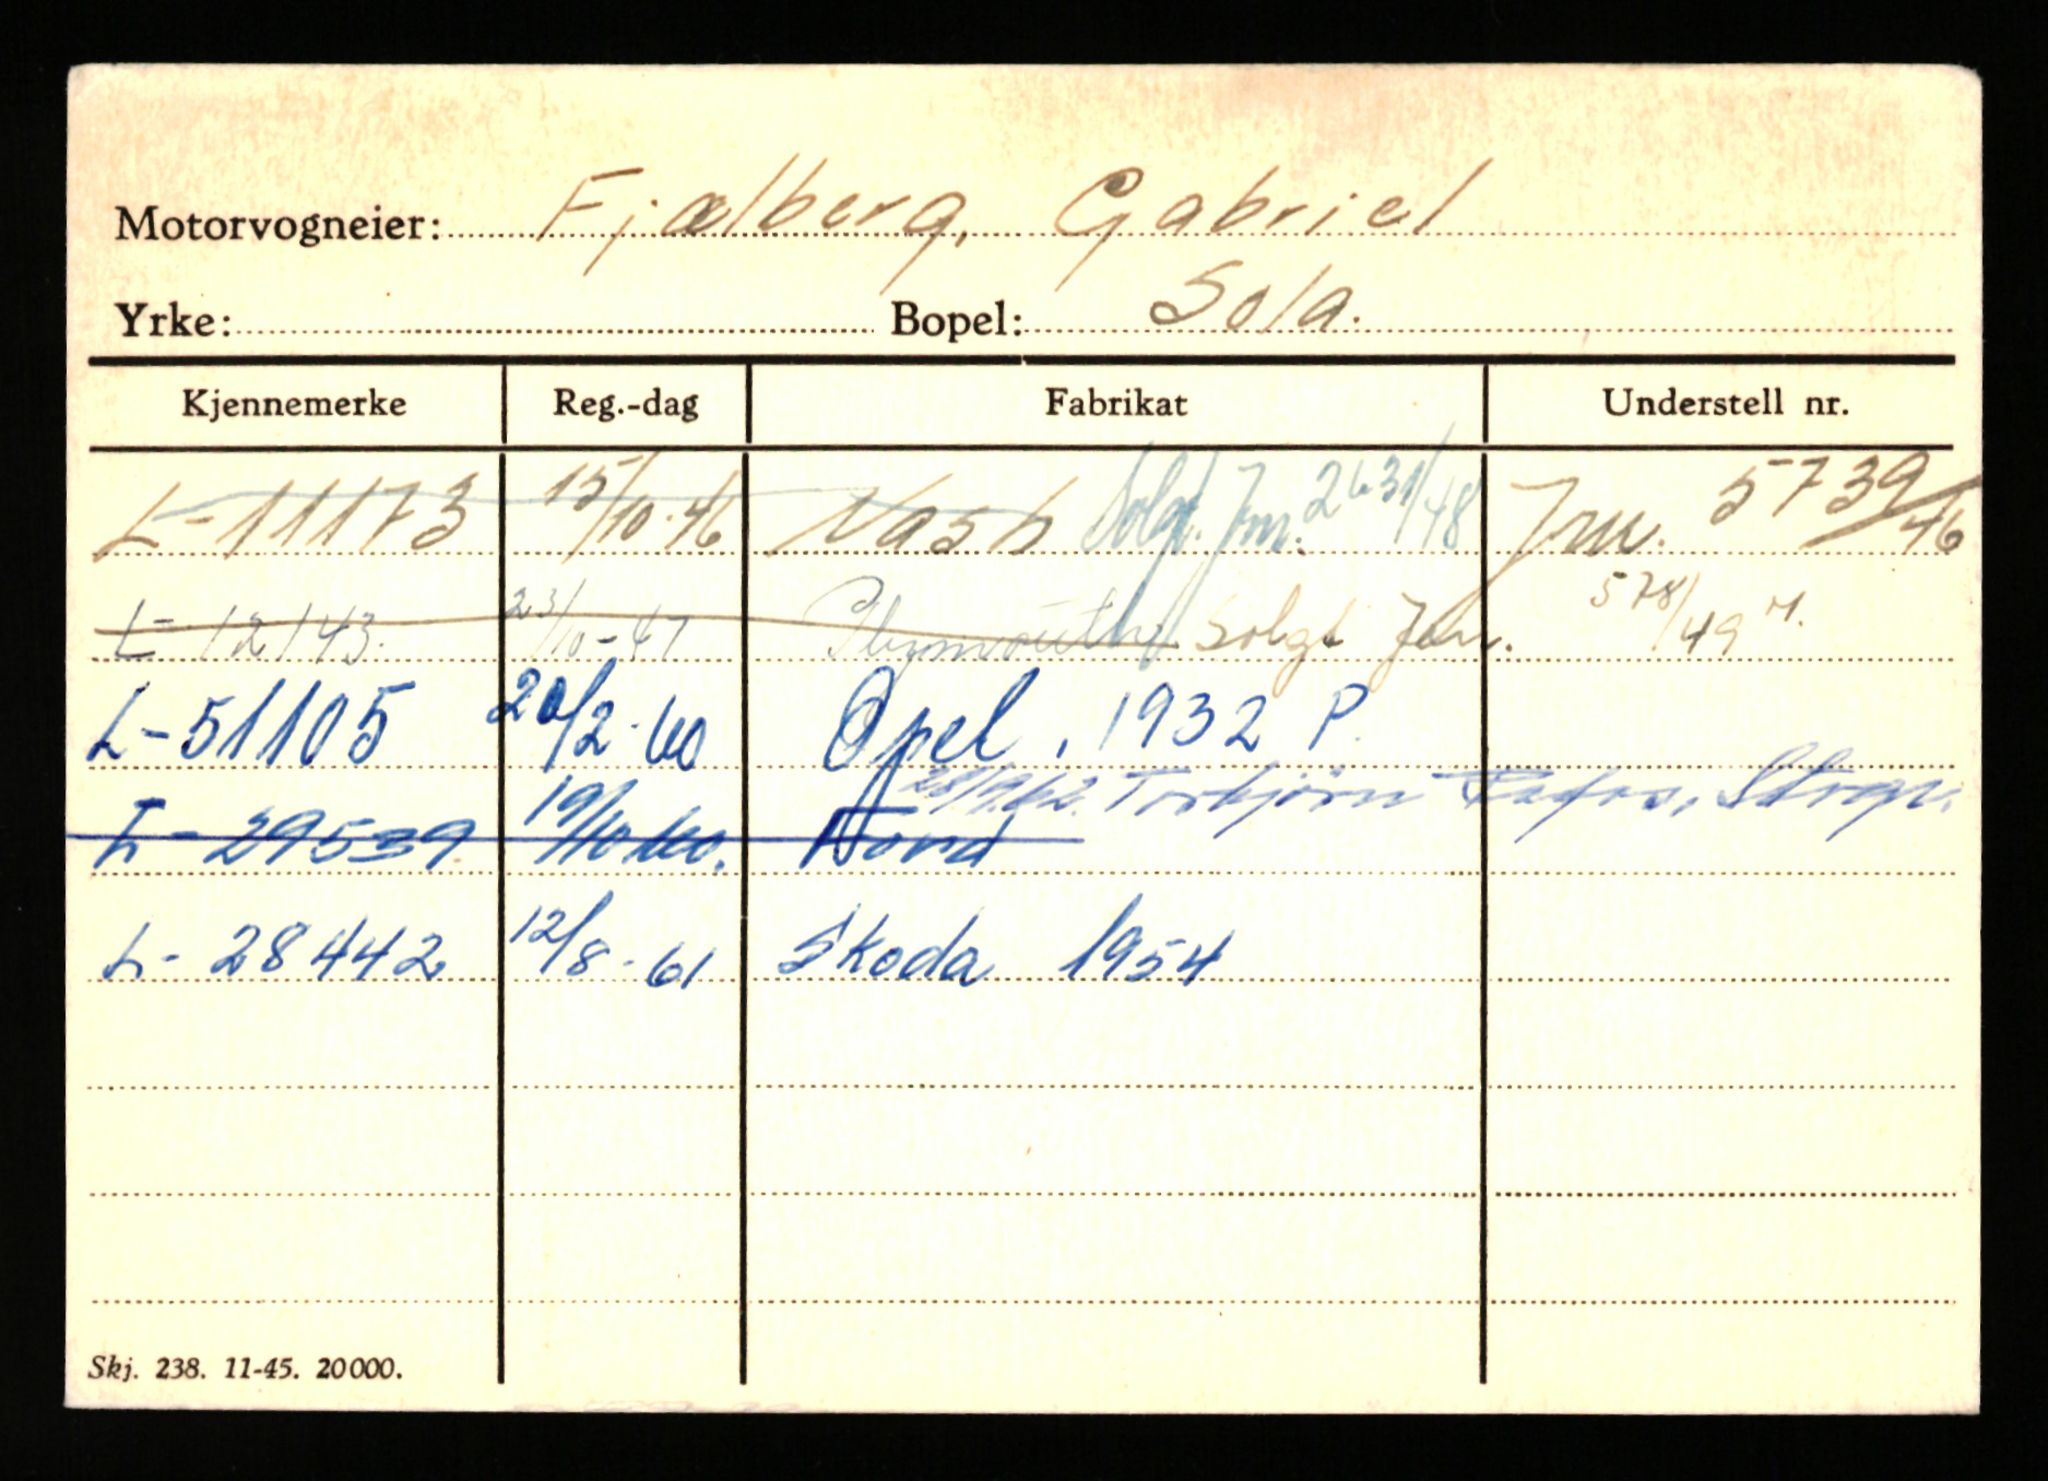 Motorvogneier: Fjælberg, Gabriel
Yrke: Bopel: Sola.
Kjennemerke Reg.-dag Fabrikat Understell nr.
L-11173 15/10-46 Nash Solgt. Jnr. 2631/48 Jnr. 5739/46
L-12143. 23/10-47 Plymouth solgt Jnr. 578/49 M.
L-51105 20/2-60 Opel, 1932 P.
28/9.62. Torbjörn
L-29539 19/10 60. Ford
L-28442 12/8-61 Skoda 1954
Skj. 238. 11-45. 20000.